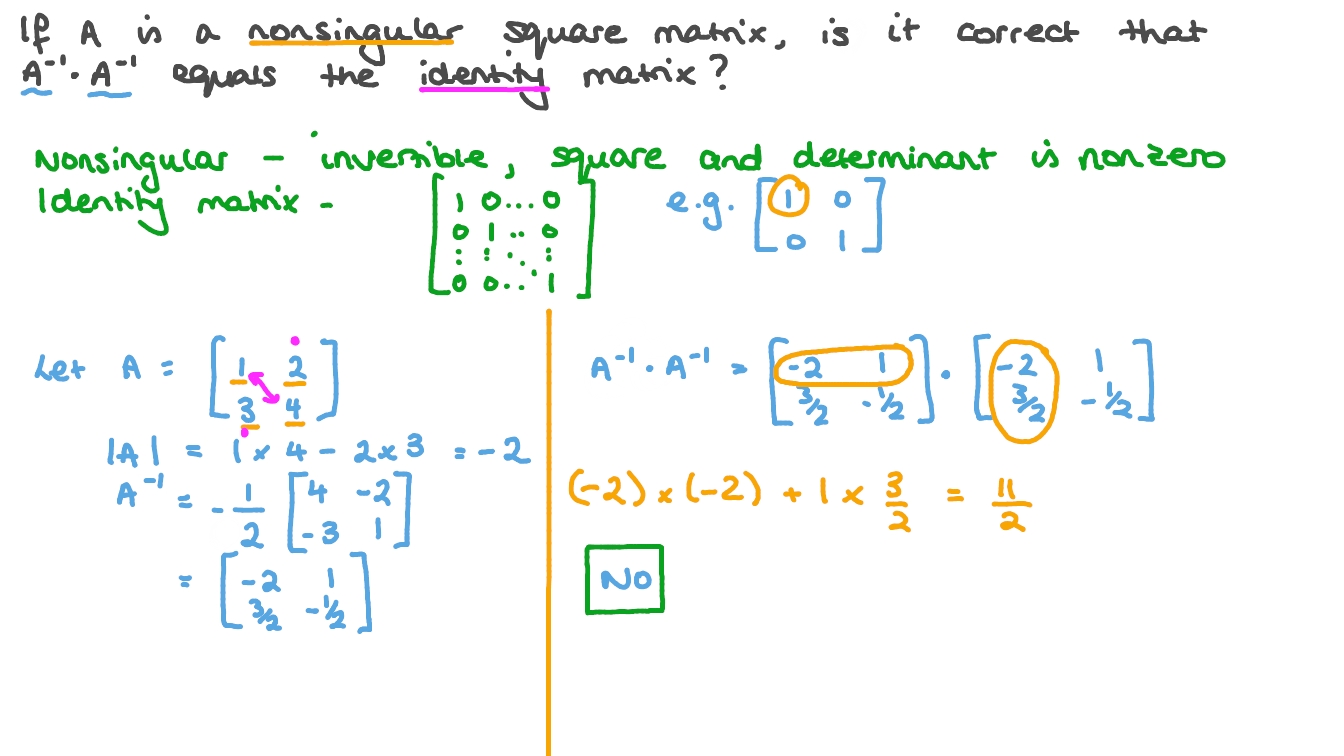 If A is a nonsingular square matrix, is it correct that
A⁻¹ · A⁻¹ equals the identity matrix?
Nonsingular – invertible, square and determinant is nonzero
Identity matrix – [1 0 ... 0; 0 1 .. 0; : : ⋱ :; 0 0 ... 1] e.g. [1 0; 0 1]
Let A = [1 2; 3 4]
|A| = 1 × 4 – 2 × 3 = –2
A⁻¹ = –1/2 [4 –2; –3 1]
= [–2 1; 3/2 –1/2]
A⁻¹ · A⁻¹ = [–2 1; 3/2 –1/2] · [–2 1; 3/2 –1/2]
(–2) × (–2) + 1 × 3/2 = 11/2
NO